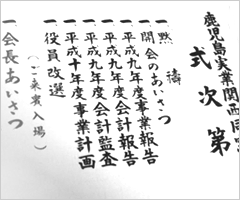 鹿児島実業関西同
式次第
一黙祷
一開会のあいさつ
一平成九年度事業報告
一平成九年度会計報告
一平成九年度会計監査
一平成十年度事業計画
一役員改選
（ご来賓入場）
一会長あいさつ